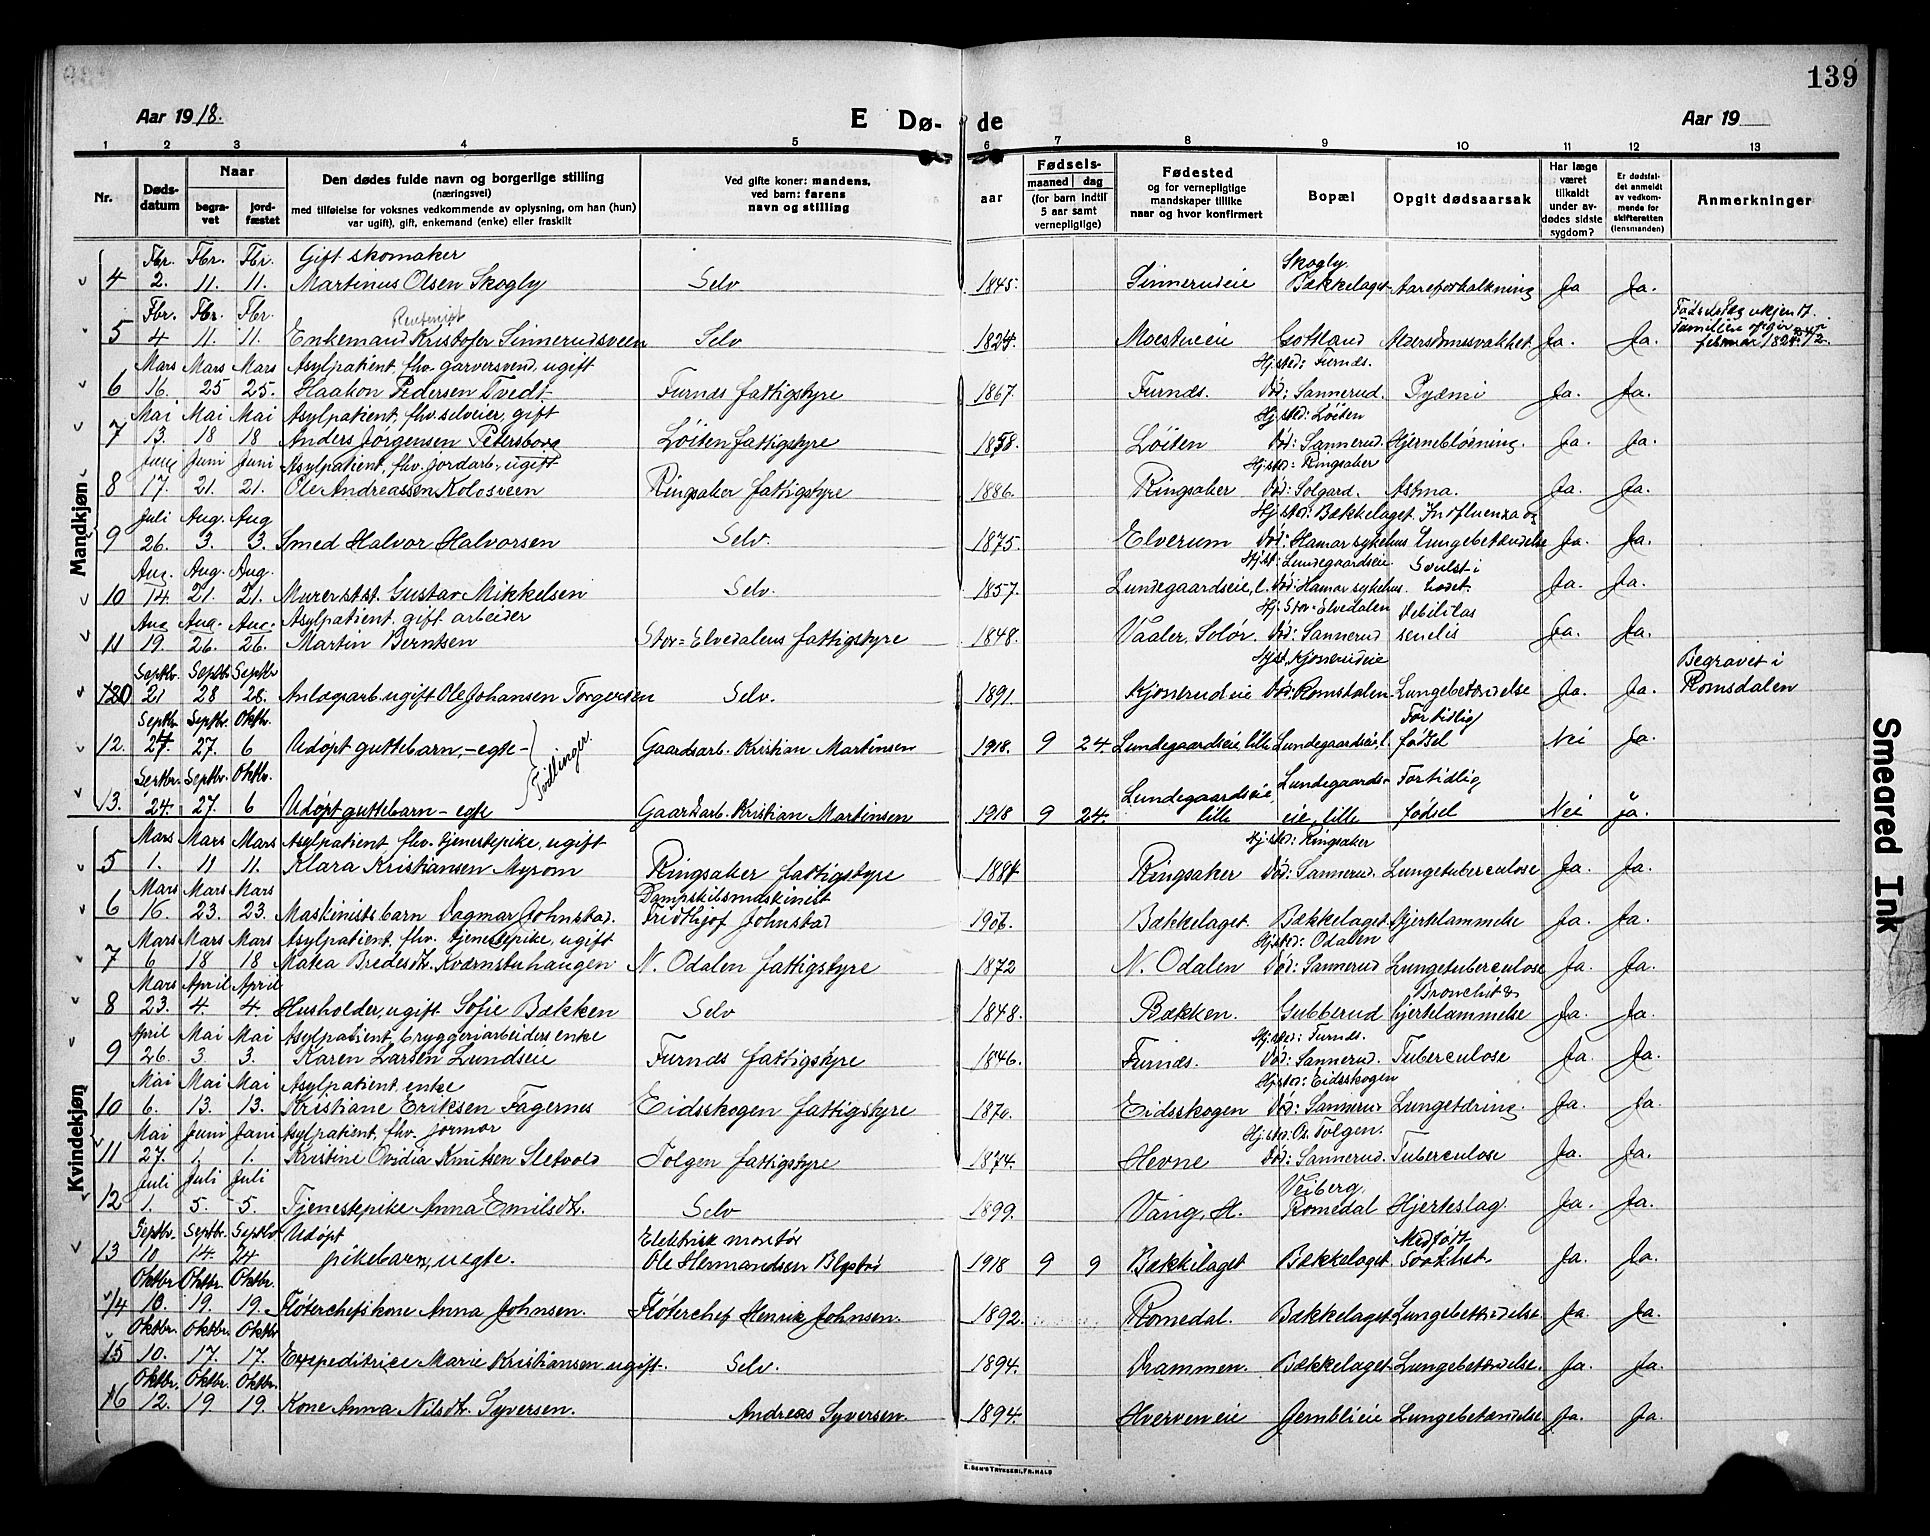 139
Aar 1918.
E Dø- de
Aar 19
1 2 3 4 5 6 7 8 9 10 11 12 13
Nr.
Døds-
datum
Naar
begra-
vet
jord-
fæstet
Den dødes fulde navn og borgerlige stilling
(næringsvei)
med tilføielse for voksnes vedkommende av oplysning, om han (hun)
var ugift), gift, enkemand (enke) eller fraskilt
Ved gifte koner: mandens,
ved barn: farens
navn og stilling
Fødsels-
aar
maaned dag
(for barn indtil
5 aar samt
vernepligtige)
Fødested
og for vernepligtige
mandskaper tillike
naar og hvor konfirmert
Bopæl
Opgit dødsaarsak
Har læge
været
tilkaldt
under av-
dødes sidste
sygdom?
Er dødsfal-
det anmeldt
av vedkom-
mende for
skifteretten
(lensmanden)
Anmerkninger
Mandkjøn
Fbr. Fbr. Fbr. Gift skomaker Skogly
4 2. 11. 11. Martinus Olsen Skogly Selv 1845. Sinnerudeie Bækkelaget Aareforkalkning Ja Ja.
Fbr. Fbr. Fbr.
5 4 11. 11. Enkemand Kristofer Sinnerudsveen Selv 1824. Moestueeie Gotland Alderdomssvakhet Ja. Ja. februar 1824
Mars Mars Mars Asylpatient, fhv. garversvend, ugift Hjsted: Furnes.
6 16. 25 25. Haakon Pedersen Tvedt Furnes fattigstyre 1867. Furnes. Død: Sannerud. Pyæmi Ja. Ja.
Mai Mai Mai Asylpatient, fhv. selveier, gift Hjsted: Løiten
7 13. 18 18 Anders Jørgensen Petersborg Løiten fattigstyre 1858. Løiten Død: Sannerud. Hjerneblødning. Ja. Ja.
Juni Juni Juni Asylpatient, fhv. jordarb., ugift Hjsted: Ringsaker
8 17. 21. 21. Ole Andreassen Kolosveen Ringsaker fattigstyre 1886. Ringsaker Død: Solgard. Astma. Ja. Ja.
Juli Aug. Aug Hjsted: Bækkelaget. Influenza og
9 26. 3. 3. Smed Halvor Halvorsen Selv. 1875. Elverum Død: Hamar sykehus Lungebetændelse Ja. Ja.
Aug. Aug. Aug. Hjst: Lundegaardseie Svulst i
10 14. 21. 21. Murer st. Gustav Mikkelsen Selv. 1857. Lundegaardseie, l. Død: Hamar sykehus. hodet. Ja. Ja.
Aug Aug. Aug. Asylpatient, gift arbeider Hj: Stor-Elvedalen Debilitas
11 19. 26. 26. Martin Berntsen Stor-Elvedalens fattigstyre 1848. Vaaler, Solør. Død: Sannerud senilis Ja. Ja.
Septbr. Septbr Septbr Hjst. Kjonerudeie Begravet i
21 28 28. Anlægsarb. ugift Ole Johansen Torgersen Selv. 1891. Kjonerudeie Død: Romsdalen Lungebetændelse Ja. Ja. Romsdalen
Septbr Septbr. Oktbr. Fortidlig
12. 24. 27. 6 Udøpt guttebarn, - egte - Tvillinger. Gaardsarb. Kristian Martinsen 1918. 9 24. Lundegaardseie, lille Lundegaardseie, l. fødsel Nei Ja.
Septbr. Septbr. Oktbr. Lundegaardseie, Lundegaards- Fortidlig
13. 24. 27. 6 Udøpt guttebarn - egte Gaardsarb. Kristian Martinsen 1918 9 24. lille eie, lille fødsel Nei ja.
Kvindekjøn
Mars Mars Mars Asylpatient, fhv. tjenestepike, ugift Hjsted: Ringsaker
5 1. 11 11. Klara Kristiansen Myrom Ringsaker fattigstyre 1884 Ringsaker Død: Sannerud. Lungetuberculose Ja. Ja.
Mars Mars Mars Dampskibsmaskinist
6 16. 23. 23. Maskinistsbarn Dagmar Johnstad. Fridthjof Johnstad 1906. Bækkelaget. Bækkelaget. Hjertelammelse Ja. Ja.
Mars Mars Mars Asylpatient, fhv. tjenestepike, ugift Hjsted: Odalen
7 6 18 18 Matea Bredesdt. Kværnstuhaugen N. Odalen fattigstyre 1872 N. Odalen Død: Sannerud Lungetuberculose Ja. Ja.
Mars April April Bronchit &
8 23. 4. 4. Husholder, ugift Sofie Bækken Selv 1848. Bækken. Gubberud hjertelammelse Ja. Ja.
April Mai Mai Asylpatient, bryggeriarbeiders enke Hjsted: Furnes.
9 26. 3. 3. Karen Larsen Lundseie Furnes fattigstyre 1846. Furnes. Død: Sannerud. Tuberculose Ja. Ja.
Mai Mai Mai Asylpatient, enke Hjsted: Eidsskogen
10 6. 13. 13. Kristiane Eriksen Fagernes Eidsskogen fattigstyre 1870. Eidsskogen Død: Sannerud Lungetæring. Ja. Ja
Mai Juni Juni Asylpatient, fhv. jormor Hjsted: Os. Tolgen.
11 27. 1. 1. Kristine Ovidia Knutsen Sletvold Tolgen fattigstyre 1874. Hevne Død: Sannerud. Tuberculose Ja. Ja.
Juli Juli Juli Veiberg,
12 1. 5. 5. Tjenestepike Anna Emilsdt. Selv 1899. Vang, H. Romedal Hjerteslag. Ja. Ja.
Septbr. Septbr Septbr Udøpt Elektrisk montør Medfødt
13 10. 14. 24 pikebarn, uegte. Ole Hermandsen 1918 9 9 Bækkelaget Bækkelaget Svakhet. Ja. Ja.
Oktbr. Oktbr. Oktbr.
14 10. 19. 19. Fløterchefskone Anna Johnsen. Fløterchef Henrik Johnsen. 1892. Romedal. Bækkelaget Lungebetændelse Ja. Ja.
Oktbr. Oktbr. Oktbr
15 10. 17. 17. Expeditrice Marie Kristiansen ugift. Selv. 1894. Drammen. Bækkelaget Lungebetændelse. Ja. Ja.
Oktbr. Oktbr. Oktbr.
16 12. 19 19. Kone Anna Nilsdt. Syversen. Andreas Syversen. 1894. Hverveneie Jemblieie Lungebetændelse Ja. Ja.
Smeared Ink